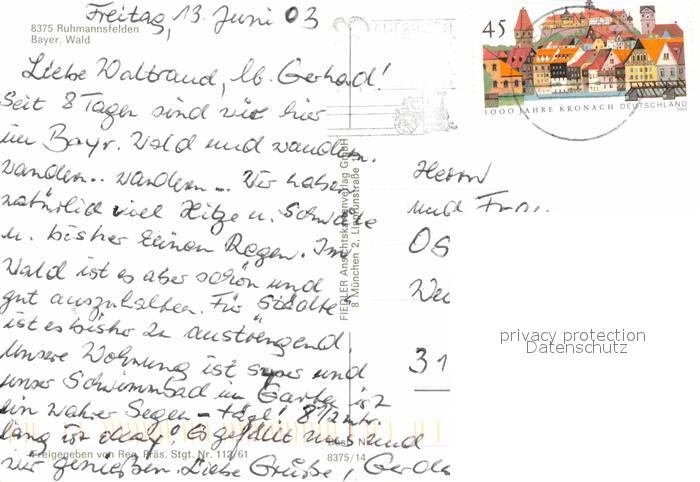 Freitag, 13. Juni 03
8375 Ruhmannsfelden
Bayer. Wald
Liebe Waltraud, lb. Gerhad!
Seit 8 Tagen sind wir hier
im Bayr. Wald und wandern.
wandern.. wandern... Wir haben
natürlich viel Hitze u. Schwüle
u. bisher keinen Regen. Im
Wald ist es aber schön und
gut auszuhalten. Für Städte
ist es bisher zu anstrengend.
Unsere Wohnung ist super und
unser Schwimmbad im Garten ist
ein wahrer Segen - tägl!
lang ist okay! Es gefällt uns und
wir genießen. Liebe Grüße, Gerda
Freigegeben von Reg. Präs. Stgt. Nr. 112/61
FIEDLER Ansichtskartenverlag GmbH
8 München 2, Ligsalzstraße
Best. Nr.
8375/14
45
1000 JAHRE KRONACH DEUTSCHLAND
2003
Herrn
und Frau
Os
We
31
privacy protection
Datenschutz